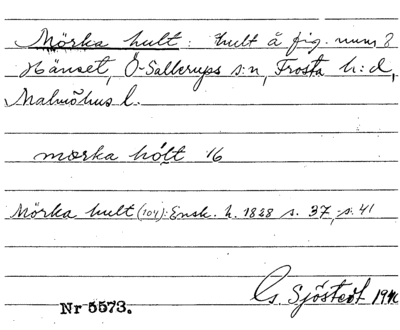 Mörka hult: hult å fig. num 8
Hänset, Ö. Sallerups s:n, Frosta h:d,
Malmöhus l.
mœrka hólt 16
Mörka hult (104): Ensk. h. 1828 s. 37, s. 41
Nr 5573.
Gs. Sjöstedt